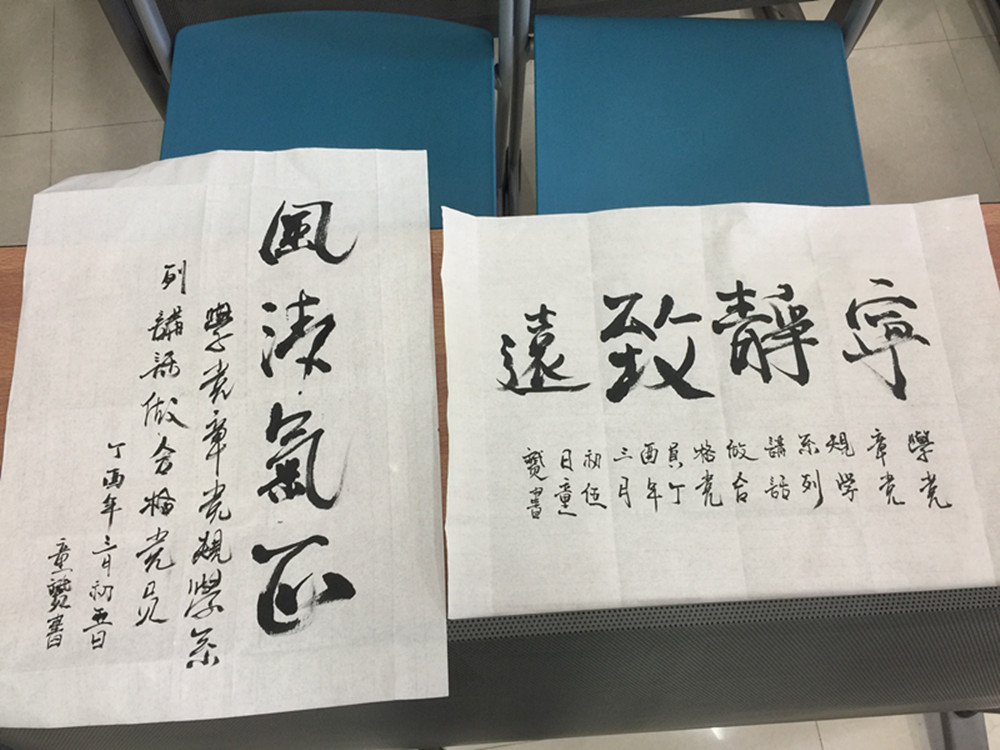 風清氣正
學党章党規學系
列講話做合格党員
丁酉年三月初五日
童贇書
寧靜致遠
學党
章党
規学
系列
講話
做合
格党
員丁
酉年
三月
初伍
日童
贇書